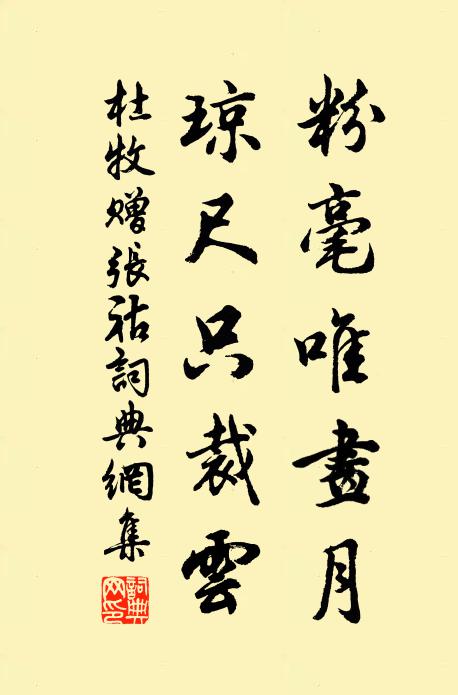 粉毫唯畫月
琼尺只裁雲
杜牧赠張祜詞典網集
詞典網印